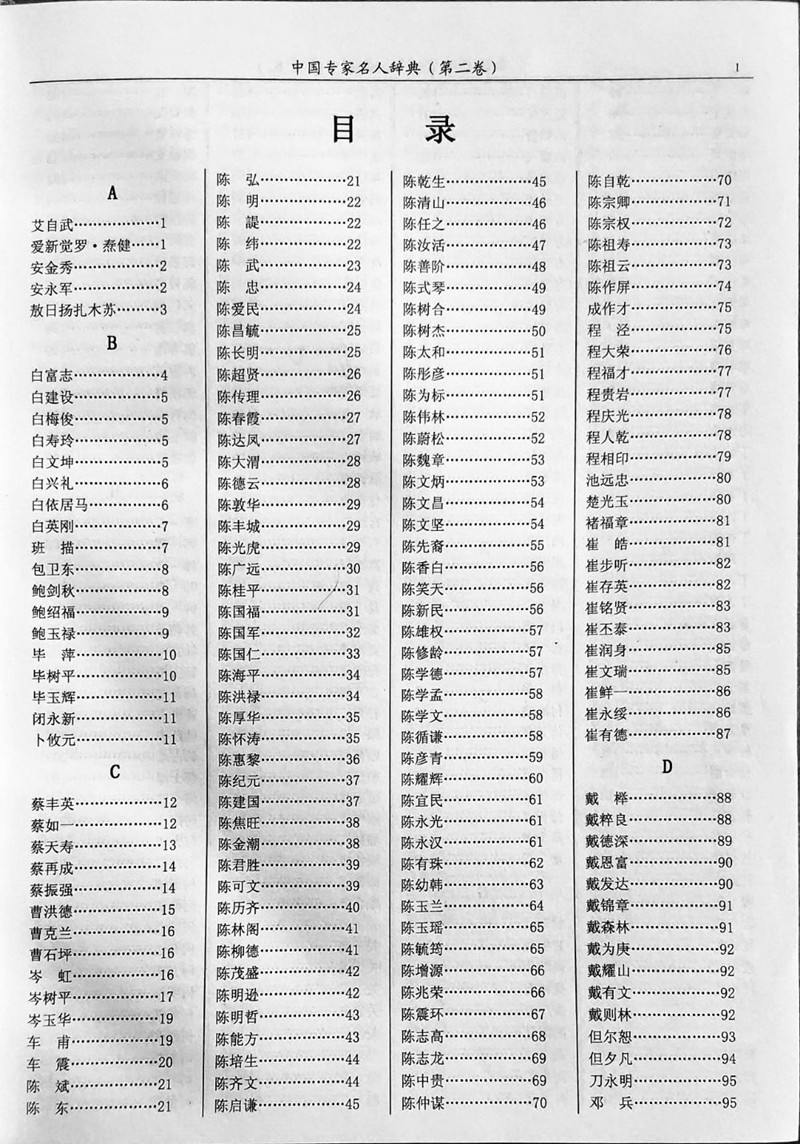 中国专家名人辞典(第二卷) 1
目 录
A
艾自武……………1
爱新觉罗·焘健……1
安金秀……………2
安永军……………2
敖日扬扎木苏………3
B
白富志……………4
白建设……………5
白梅俊……………5
白寿玲……………5
白文坤……………5
白兴礼……………6
白依居马…………6
白英刚……………7
班 描……………7
包卫东……………8
鲍剑秋……………8
鲍绍福……………9
鲍玉禄……………9
毕 萍……………10
毕树平……………10
毕玉辉……………11
闭永新……………11
卜攸元……………11
C
蔡丰英……………12
蔡如一……………12
蔡天寿……………13
蔡再成……………14
蔡振强……………14
曹洪德……………15
曹克兰……………16
曹石坪……………16
岑 虹……………16
岑树平……………17
岑玉华……………19
车 甫……………19
车 震……………20
陈 斌……………21
陈 东……………21
陈 弘……………21
陈 明……………22
陈 諟……………22
陈 纬……………22
陈 武……………23
陈 忠……………24
陈爱民……………24
陈昌毓……………25
陈长明……………25
陈超贤……………26
陈传理……………26
陈春霞……………27
陈达凤……………27
陈大渭……………28
陈德云……………28
陈敦华……………29
陈丰城……………29
陈光虎……………29
陈广远……………30
陈桂平……………31
陈国福……………31
陈国军……………32
陈国仁……………33
陈海平……………34
陈洪禄……………34
陈厚华……………35
陈怀涛……………35
陈惠黎……………36
陈纪元……………37
陈建国……………37
陈焦旺……………38
陈金潮……………38
陈君胜……………39
陈可文……………39
陈历齐……………40
陈林阁……………41
陈柳德……………41
陈茂盛……………42
陈明逊……………42
陈明哲……………43
陈能方……………43
陈培生……………44
陈齐文……………44
陈启谦……………45
陈乾生……………45
陈清山……………46
陈任之……………46
陈汝活……………47
陈善阶……………48
陈式琴……………49
陈树合……………49
陈树杰……………50
陈太和……………51
陈彤彦……………51
陈为标……………51
陈伟林……………52
陈蔚松……………52
陈魏章……………53
陈文炳……………53
陈文昌……………54
陈文坚……………54
陈先裔……………55
陈香白……………56
陈笑天……………56
陈新民……………56
陈雄权……………57
陈修龄……………57
陈学德……………57
陈学孟……………58
陈学文……………58
陈循谦……………58
陈彦青……………59
陈耀辉……………60
陈宜民……………61
陈永光……………61
陈永汉……………61
陈有珠……………62
陈幼韩……………63
陈玉兰……………64
陈玉瑶……………65
陈毓筠……………65
陈增源……………66
陈兆荣……………66
陈震环……………67
陈志高……………68
陈志龙……………69
陈中贵……………69
陈仲谋……………70
陈自乾……………70
陈宗卿……………71
陈宗权……………72
陈祖寿……………73
陈祖云……………73
陈作屏……………74
成作才……………75
程 泾……………75
程大荣……………76
程福才……………77
程贵岩……………77
程庆光……………78
程人乾……………78
程相印……………79
池远忠……………80
楚光玉……………80
褚福章……………81
崔 皓……………81
崔步听……………82
崔存英……………82
崔铭贤……………83
崔丕泰……………83
崔润身……………85
崔文瑞……………85
崔鲜一……………86
崔永绥……………86
崔有德……………87
D
戴 桦……………88
戴粹良……………88
戴德深……………89
戴恩富……………90
戴发达……………90
戴锦章……………91
戴森林……………91
戴为庚……………92
戴耀山……………92
戴有文……………92
戴则林……………92
但尔恕……………93
但夕凡……………94
刀永明……………95
邓 兵……………95